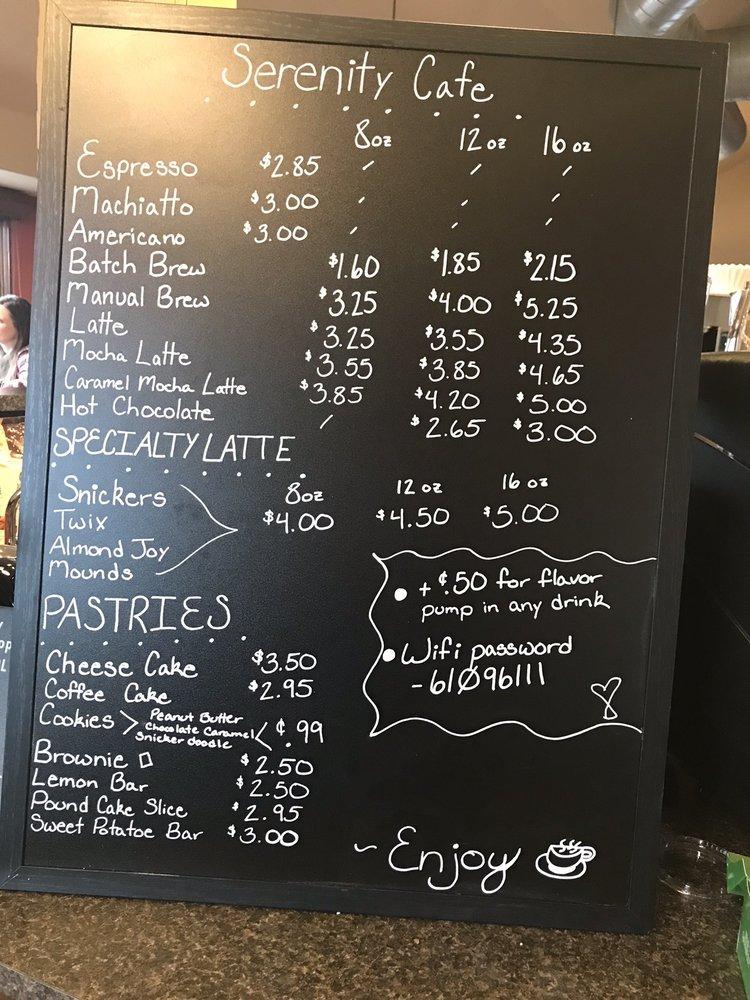 Serenity Cafe
8oz 12 oz 16 oz
Espresso $2.85 / / /
Machiatto $3.00 / / /
Americano $3.00 / / /
Batch Brew $1.60 $1.85 $2.15
Manual Brew $3.25 $4.00 $5.25
Latte $3.25 $3.55 $4.35
Mocha Latte $3.55 $3.85 $4.65
Caramel Mocha Latte $3.85 $4.20 $5.00
Hot Chocolate / $2.65 $3.00
SPECIALTY LATTE
8oz 12 oz 16 oz
Snickers
Twix
Almond Joy
Mounds
$4.00 $4.50 $5.00
+ ¢.50 for flavor
pump in any drink
Wifi password
- 61Ø96111
PASTRIES
Cheese Cake $3.50
Coffee Cake $2.95
Cookies > Peanut Butter
Chocolate Caramel
Snicker doodle < ¢.99
Brownie $2.50
Lemon Bar $2.50
Pound Cake Slice $2.95
Sweet Potatoe Bar $3.00
~ Enjoy